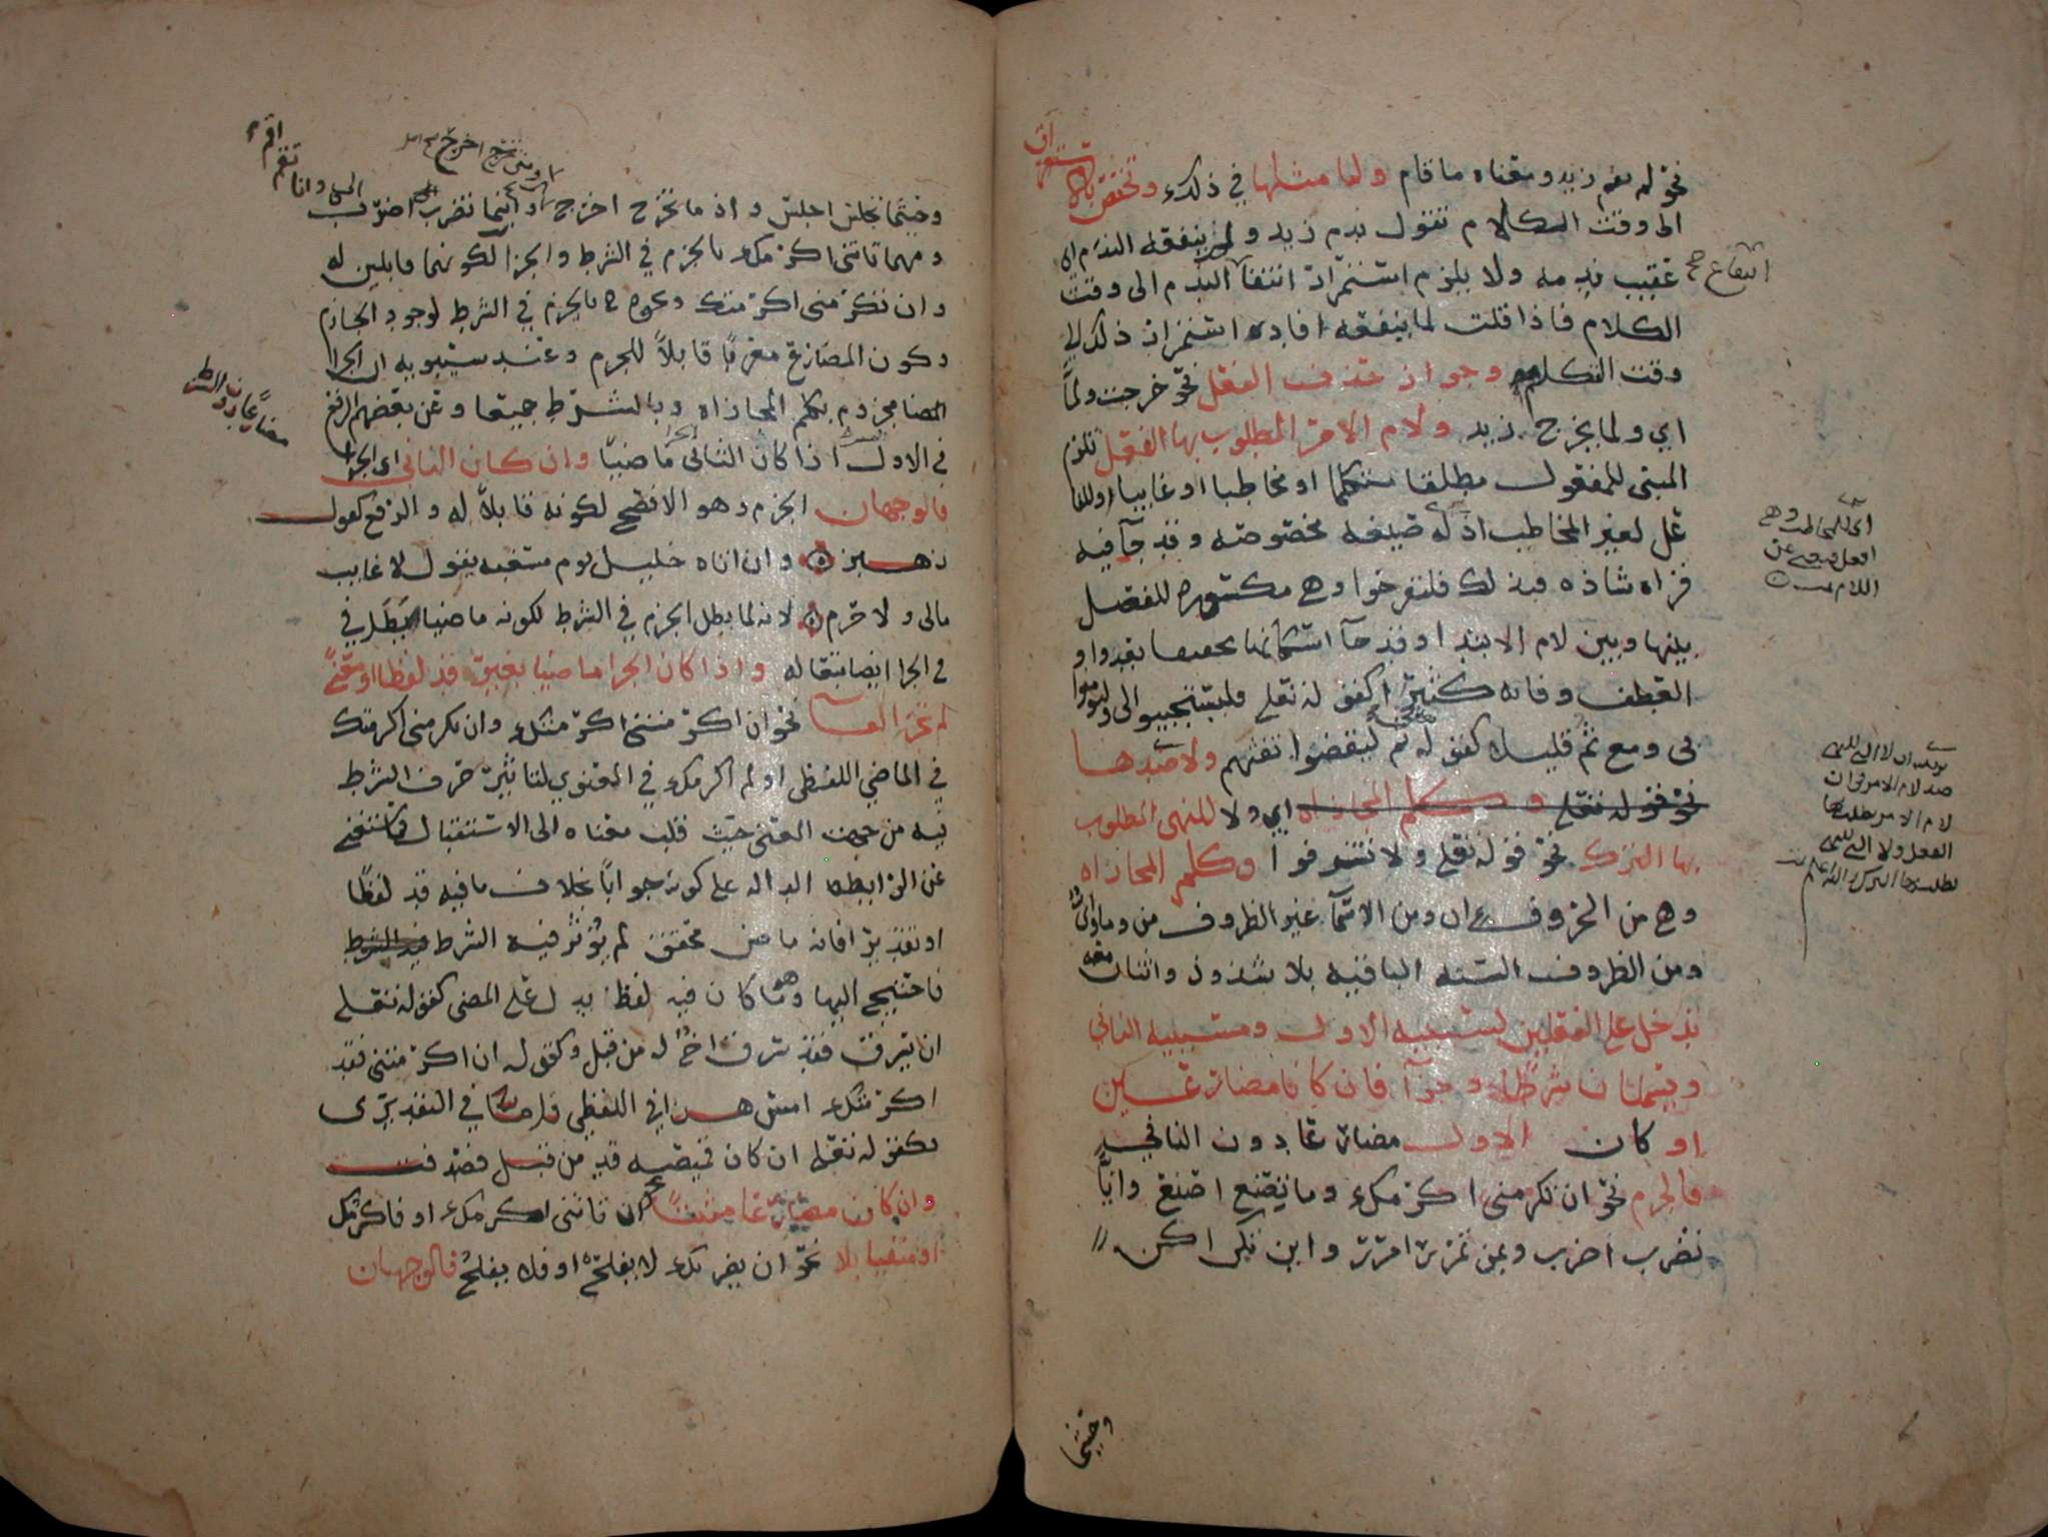 نحو لم يقم زيد ومعناه ما قام ولما مثلها في ذلك وتختص بالاستغراق
الى وقت الكلام تقول ندم زيد ولم ينفعه الندم اي
عقيب ندمه ولا يلزم استمرار انتفآ الندم الى وقت
انتفاع صح
الكلام فاذا قلت لما ينفعه افاده استمرار ذلك الى
وقت التكلم وجواز حذف الفعل نحو خرجت ولما
اي ولما يخرج زيد ولام الامر المطلوب بها الفعل تلزم
المبني للمفعول مطلقا متكلما او مخاطبا او غايبا وللفا
عل لغير المخاطب اذ له صيغه مخصوصه وقد جآ فيه
قراه شاذه فبذلك فلتفرحوا وهي مكسوره للفصل
بينها وبين لام الابتدا وقد جآ اسكانها بعد واو
العطف وفائه كثيرا كقوله تعالى فليستجيبوا لي وليومنوا
بي ومع ثم قليلا كقوله ثم ليقضوا تفثهم ولا ضدها
نحو قوله تعالى وكلم المجازاه اي ولا للنهي المطلوب
بها الترك نحو قوله تعالى ولا تسرفوا وكلم المجازاه
وهي من الحروف ان ومن الاسمآ غير الظروف من وما واي
ومن الظروف السته الباقيه بلا شذوذ واثنان معه
تدخل على الفعلين لسببيه الاول ومسببيه الثاني
ويسميان شرطا وجزآ فان كانا مضارعين
او كان الاول مضارعا دون الثاني
فالجزم نحو ان تكرمني اكرمك وما تصنع اصنع وايا
تضرب اضرب وبمن تمرر امرر واين تكن اكن
وحيثما
وحيثما تجلس اجلس واذ ما تخرج اخرج او اينما تضرب اضرب
ومهما تاتني اكرمك بالجزم في الشرط والجزا لكونهما قابلين له
وان تكرمني اكرمتك ونحوه بالجزم في الشرط لوجود الجازم
وكون المضارع معربا قابلا للجزم وعند سيبويه ان الجزا
ايضا مجزوم بكلم المجازاه وبالشرط جميعا وعن بعضهم الرفع
في الاول اذا كان الثاني ماضيا وان كان الثاني اي الجزا
مضارعا دون الشرط
فالوجهان الجزم وهو الافصح لكونه قابلا له والرفع كقول
زهير وان اتاه خليل يوم مسغبه يقول لا غايب
مالي ولا حرم لانه لما بطل الجزم في الشرط لكونه ماضيا بطل في
في الجزا ايضا تبعا له واذا كان الجزا ماضيا بغير قد لفظا او معنى
لم تجز الفا نحو ان اكرمتني اكرمتك وان تكرمني اكرمتك
في الماضي اللفظي او لم اكرمك في المعنوي لتاثير حرف الشرط
فيه من حيث المعنى حيث قلب معناه الى الاستقبال فاستغنى
عن الرابطه الداله على كونه جوابا بخلاف ما فيه قد لفظا
او تقديرا فانه ماض محقق لم يؤثر فيه الشرط فيه الشرط
فاحتيج اليها وهو ما كان فيه لفظ يدل على المضي كقوله تعالى
ان يسرق فقد سرق اخ له من قبل وكقوله ان اكرمتني فقد
اكرمتك امس هذا في اللفظي واما في التقديري
فكقوله تعالى ان كان قميصه قد من قبل فصدقت
وان كان مضارعا مثبتا نحو ان تاتني اكرمك او فاكرمك
او منفيا بلا نحو ان يضربك لا يفلح او فلا يفلح فالوجهان